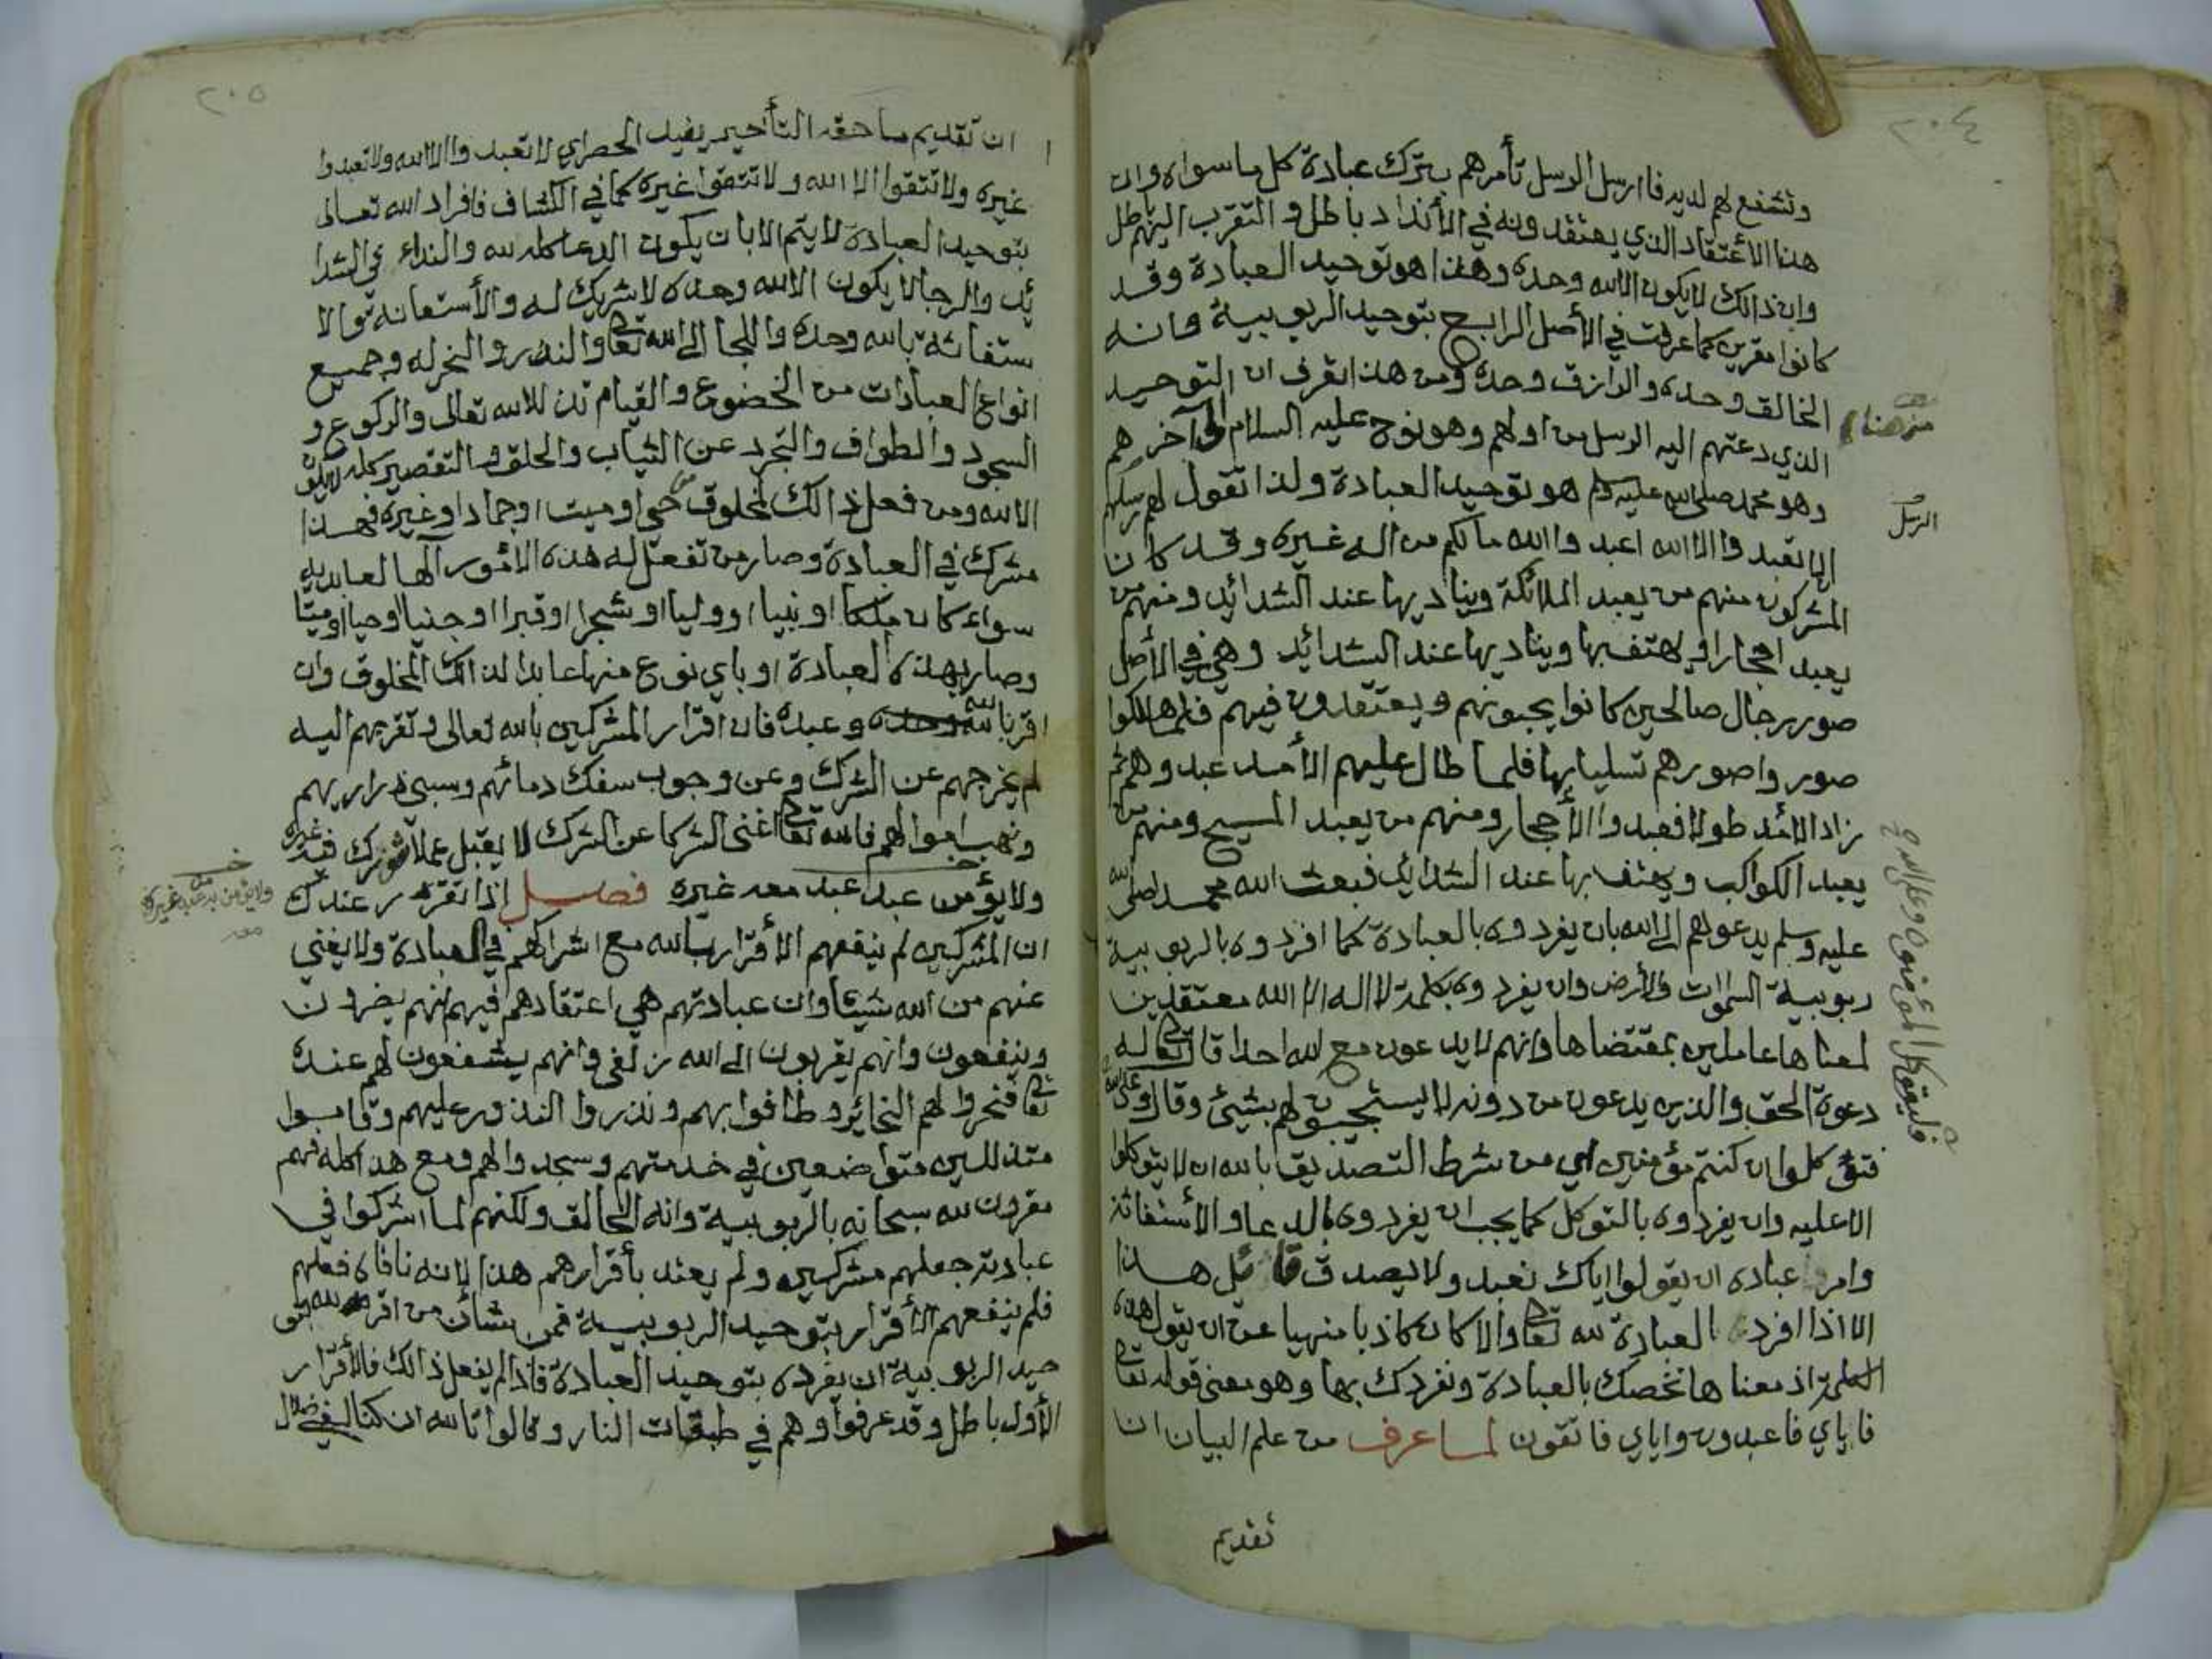 ٢٠٤
وتشفع لهم لديه فارسل الرسل تأمرهم بترك عبادة كل ماسواه وان
هذا الأعتقاد الذي يعتقدونه في الأنداد باطل والتقرب اليهم باطل
وان ذالك لا يكون الا لله وحده وهذا هو توحيد العبادة وقد
كانوا مقرين كما عرفت في الأصل الرابع بتوحيد الربوبية وانه
الخالق وحده والرازق وحده ومن هذا تعرف ان التوحيد
الذي دعتهم اليه الرسل من اولهم وهو نوح عليه السلام الى آخرهم
وهو محمد صلى الله عليه وسلم هو توحيد العبادة ولذا تقول لهم رسلهم
الا تعبدوا الا الله اعبدوا الله مالكم من اله غيره وقد كان
المشركون منهم من يعبد الملائكة ويناديها عند الشدائد ومنهم من
يعبد احجارا ويهتف بها ويناديها عند الشدائد وهي في الأصل
صور رجال صالحين كانوا يحبونهم ويعتقدون فيهم فلما هلكوا
صوروا صورهم تسليا بها فلما طال عليهم الأمد عبدوهم ثم
زاد الأمد طولا فعبدوا الأحجار ومنهم من يعبد المسيح ومنهم من
يعبد الكواكب ويهتف بها عند الشدائد فبعث الله محمد صلى الله
عليه وسلم يدعوهم الى الله بان يفردوه بالعبادة كما افردوه بالربوبية
ربوبية السموات والأرض وان يفردوه بكلمة لا اله الا الله معتقدين
لمعناها عاملين بمقتضاها وانهم لا يدعون مع الله احدا قال تعالى له
دعوة الحق والذين يدعون من دونه لا يستجيبون لهم بشيئ وقال وعلى الله
فتوكلوا ان كنتم مؤمنين اي من شرط التصديق بالله ان لا يتوكلوا
الا عليه وان يفردوه بالتوكل كما يجب ان يفردوه بالدعا والأستغاثة
وامر عباده ان يقولوا اياك نعبد ولا يصدق قائل هذا
الا اذا افرد العبادة لله تعالى والا كان كاذبا منهيا عن ان يقول هذه
الكلمة اذ معناها نخصك بالعبادة ونفردك بها وهو معنى قوله تعالى
فاياي فاعبدون واياي فاتقون لما عرف من علم البيان ان
تقديم
من هنا
الرسل
فليتوكل المؤمنون وعلى الله
٢٠٥
ان تقديم ما حقه التأخير يفيد الحصر اي لا تعبدوا الا الله ولا تعبدوا
غيره ولا تتقوا الا الله ولا تتقوا غيره كما في الكشاف فافراد الله تعالى
بتوحيد العبادة لا يتم الا بان يكون الدعا كله لله والنداء في الشدا
ئد والرجا لا يكون الا لله وحده لا شريك له والأستعانة والا
ستغاثة بالله وحده واللجا الى الله تعالى والنذر والنحر له وجميع
انواع العبادات من الخضوع والقيام تذللا لله تعالى والركوع و
السجود والطواف والتجرد عن الثياب والحلق والتقصير كله لا يكون
الا لله ومن فعل ذالك لمخلوق من حي او ميت او جماد او غيره فهذا
مشرك في العبادة وصار من تفعل له هذه الأمور آلها لعابديه
سواء كان ملكا او نبيا او وليا او شجرا او قبرا او جنيا او حيا او ميتا
وصار بهذه العبادة او باي نوع منها عابدا لذالك المخلوق وان
اقر بالله وحده وعبده فان اقرار المشركين بالله تعالى وتقربهم اليه
لم يخرجهم عن الشرك وعن وجوب سفك دمائهم وسبي ذراريهم
ونهب اموالهم فالله تعالى اغنى الشركا عن الشرك لا يقبل عملا شورك فيه غيره
ولا يؤمن عبد عبد معه غيره فصل اذا تقرر عندك
ان المشركين لم ينفعهم الأقرار بالله مع اشراكهم في العبادة ولا يغني
عنهم من الله شيئا وان عبادتهم هي اعتقادهم فيهم انهم يضرون
وينفعون وانهم يقربون الى الله زلفى وانهم يشفعون لهم عنده
تعالى فنحروا لهم النحائر وطافوا بهم ونذروا النذور عليهم وقاموا
متذللين متواضعين في خدمتهم وسجدوا لهم ومع هذا كله فهم
مقرون لله سبحانه بالربوبية وانه الخالق ولكنهم لما اشركوا في
عبادته جعلهم مشركين ولم يعتد بأقرارهم هذا لانه نافاه فعلهم
فلم ينفعهم الأقرار بتوحيد الربوبية فمن شأن من اقر لله بتو
حيد الربوبية ان يفرده بتوحيد العبادة فاذا لم يفعل ذالك فالأقرار
الأول باطل وقد عرفوا وهم في طبقات النار وقالوا تالله ان كنا لفي ضلال
ولا يؤمن به من عبد غيره
معه